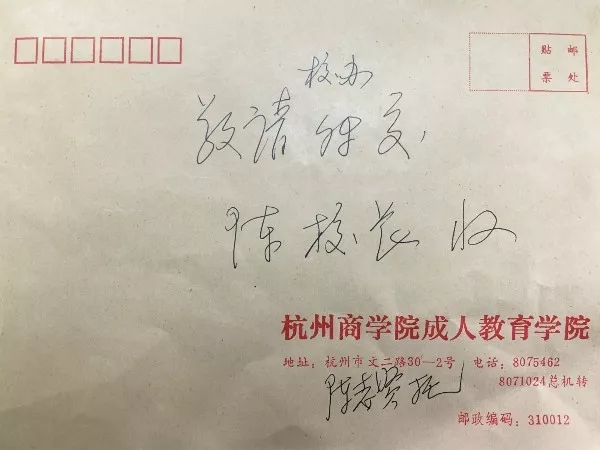 贴 邮
票 处
校办
敬请转交
陈校长 收
杭州商学院成人教育学院
地址：杭州市文二路30—2号 电话：8075462
8071024总机转
陈志贤托
邮政编码：310012